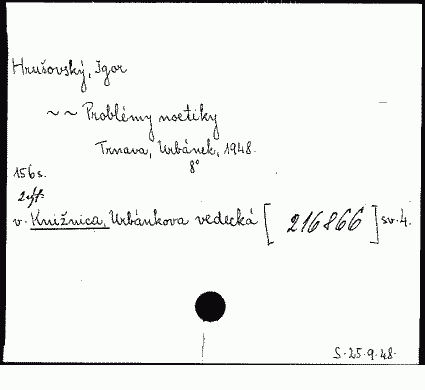 Hrušovský, Igor
~ ~ Problémy noetiky
Trnava, Urbánek, 1948.
8°
156 s.
v. Knižnica, Urbánkova vedecká [ 216866 ] sv. 4.
S. 25.9.48.